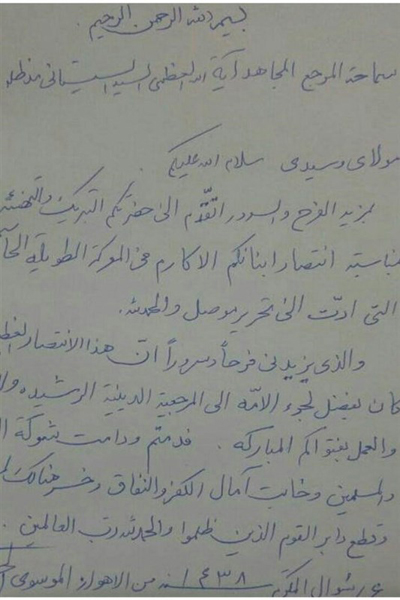 بسم الله الرحمن الرحیم
سماحة المرجع المجاهد آیة الله العظمی السید السیستانی مدظله
مولای وسیدی سلام الله علیکم
بمزید الفرح والسرور اتقدّم الی حضرتکم التبریک والتهنئة
بمناسبة انتصار ابنائکم الاکارم فی المعرکة الطویلة
التی ادّت الی تحریر موصل والحمدلله.
والذی یزیدنی فرحاً وسروراً انّ هذا الانتصار العظیم
کان بفضل لجوء الامّه الی المرجعیة الدینیة الرشیده
والعمل بفتواکم المبارکه. فدمتم ودامت شوکة
والمسلمین وخابت آمال الکفر والنفاق وخسر هنالک
وقطع دابر القوم الذین ظلموا والحمدلله رب العالمین.
شوال المکرّم ١٤٣٨ من الاهواز الموسوی